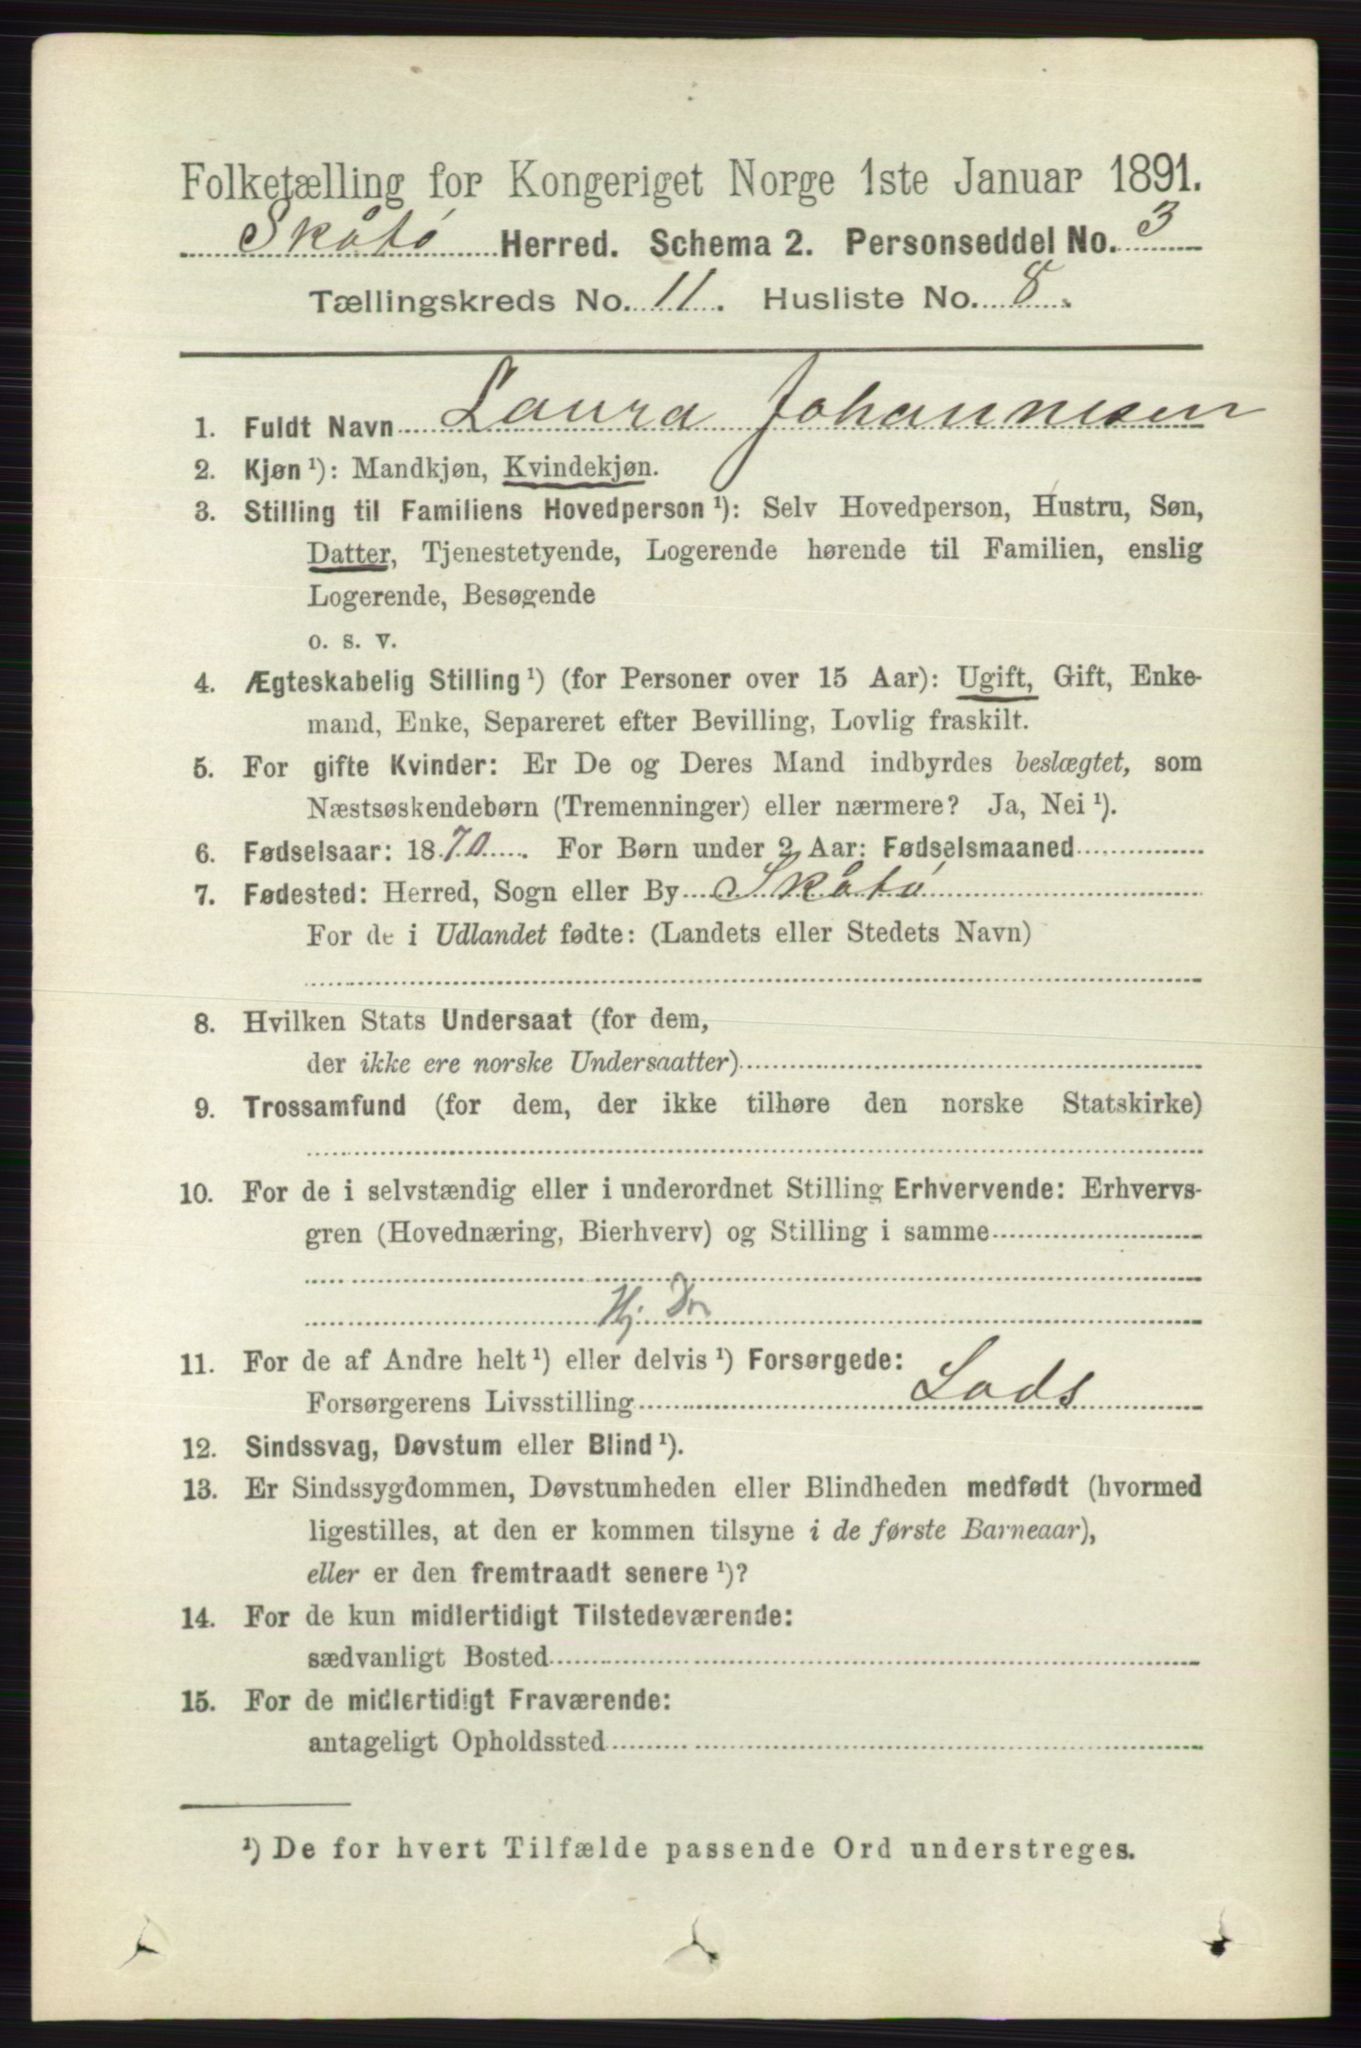 Folketælling for Kongeriget Norge 1ste Januar 1891.
Skåtø Herred. Schema 2. Personseddel No. 3
Tællingskreds No. 11. Husliste No. 8.
1. Fuldt Navn Laura Johannesen
2. Kjøn ¹): Mandkjøn, Kvindekjøn.
3. Stilling til Familiens Hovedperson ¹): Selv Hovedperson, Hustru, Søn,
Datter, Tjenestetyende, Logerende hørende til Familien, enslig
Logerende, Besøgende
o. s. v.
4. Ægteskabelig Stilling ¹) (for Personer over 15 Aar): Ugift, Gift, Enke-
mand, Enke, Separeret efter Bevilling, Lovlig fraskilt.
5. For gifte Kvinder: Er De og Deres Mand indbyrdes beslægtet, som
Næstsøskendebørn (Tremenninger) eller nærmere? Ja, Nei ¹).
6. Fødselsaar: 1870. For Børn under 2 Aar: Fødselsmaaned
7. Fødested: Herred, Sogn eller By Skåtø
For de i Udlandet fødte: (Landets eller Stedets Navn)
8. Hvilken Stats Undersaat (for dem,
der ikke ere norske Undersaatter)
9. Trossamfund (for dem, der ikke tilhøre den norske Statskirke)
10. For de i selvstændig eller i underordnet Stilling Erhvervende: Erhvervs-
gren (Hovednæring, Bierhverv) og Stilling i samme
Hj. Dr
11. For de af Andre helt ¹) eller delvis ¹) Forsørgede:
Forsørgerens Livsstilling Lods
12. Sindssvag, Døvstum eller Blind ¹).
13. Er Sindssygdommen, Døvstumheden eller Blindheden medfødt (hvormed
ligestilles, at den er kommen tilsyne i de første Barneaar),
eller er den fremtraadt senere ¹)?
14. For de kun midlertidigt Tilstedeværende:
sædvanligt Bosted
15. For de midlertidigt Fraværende:
antageligt Opholdssted
¹) De for hvert Tilfælde passende Ord understreges.